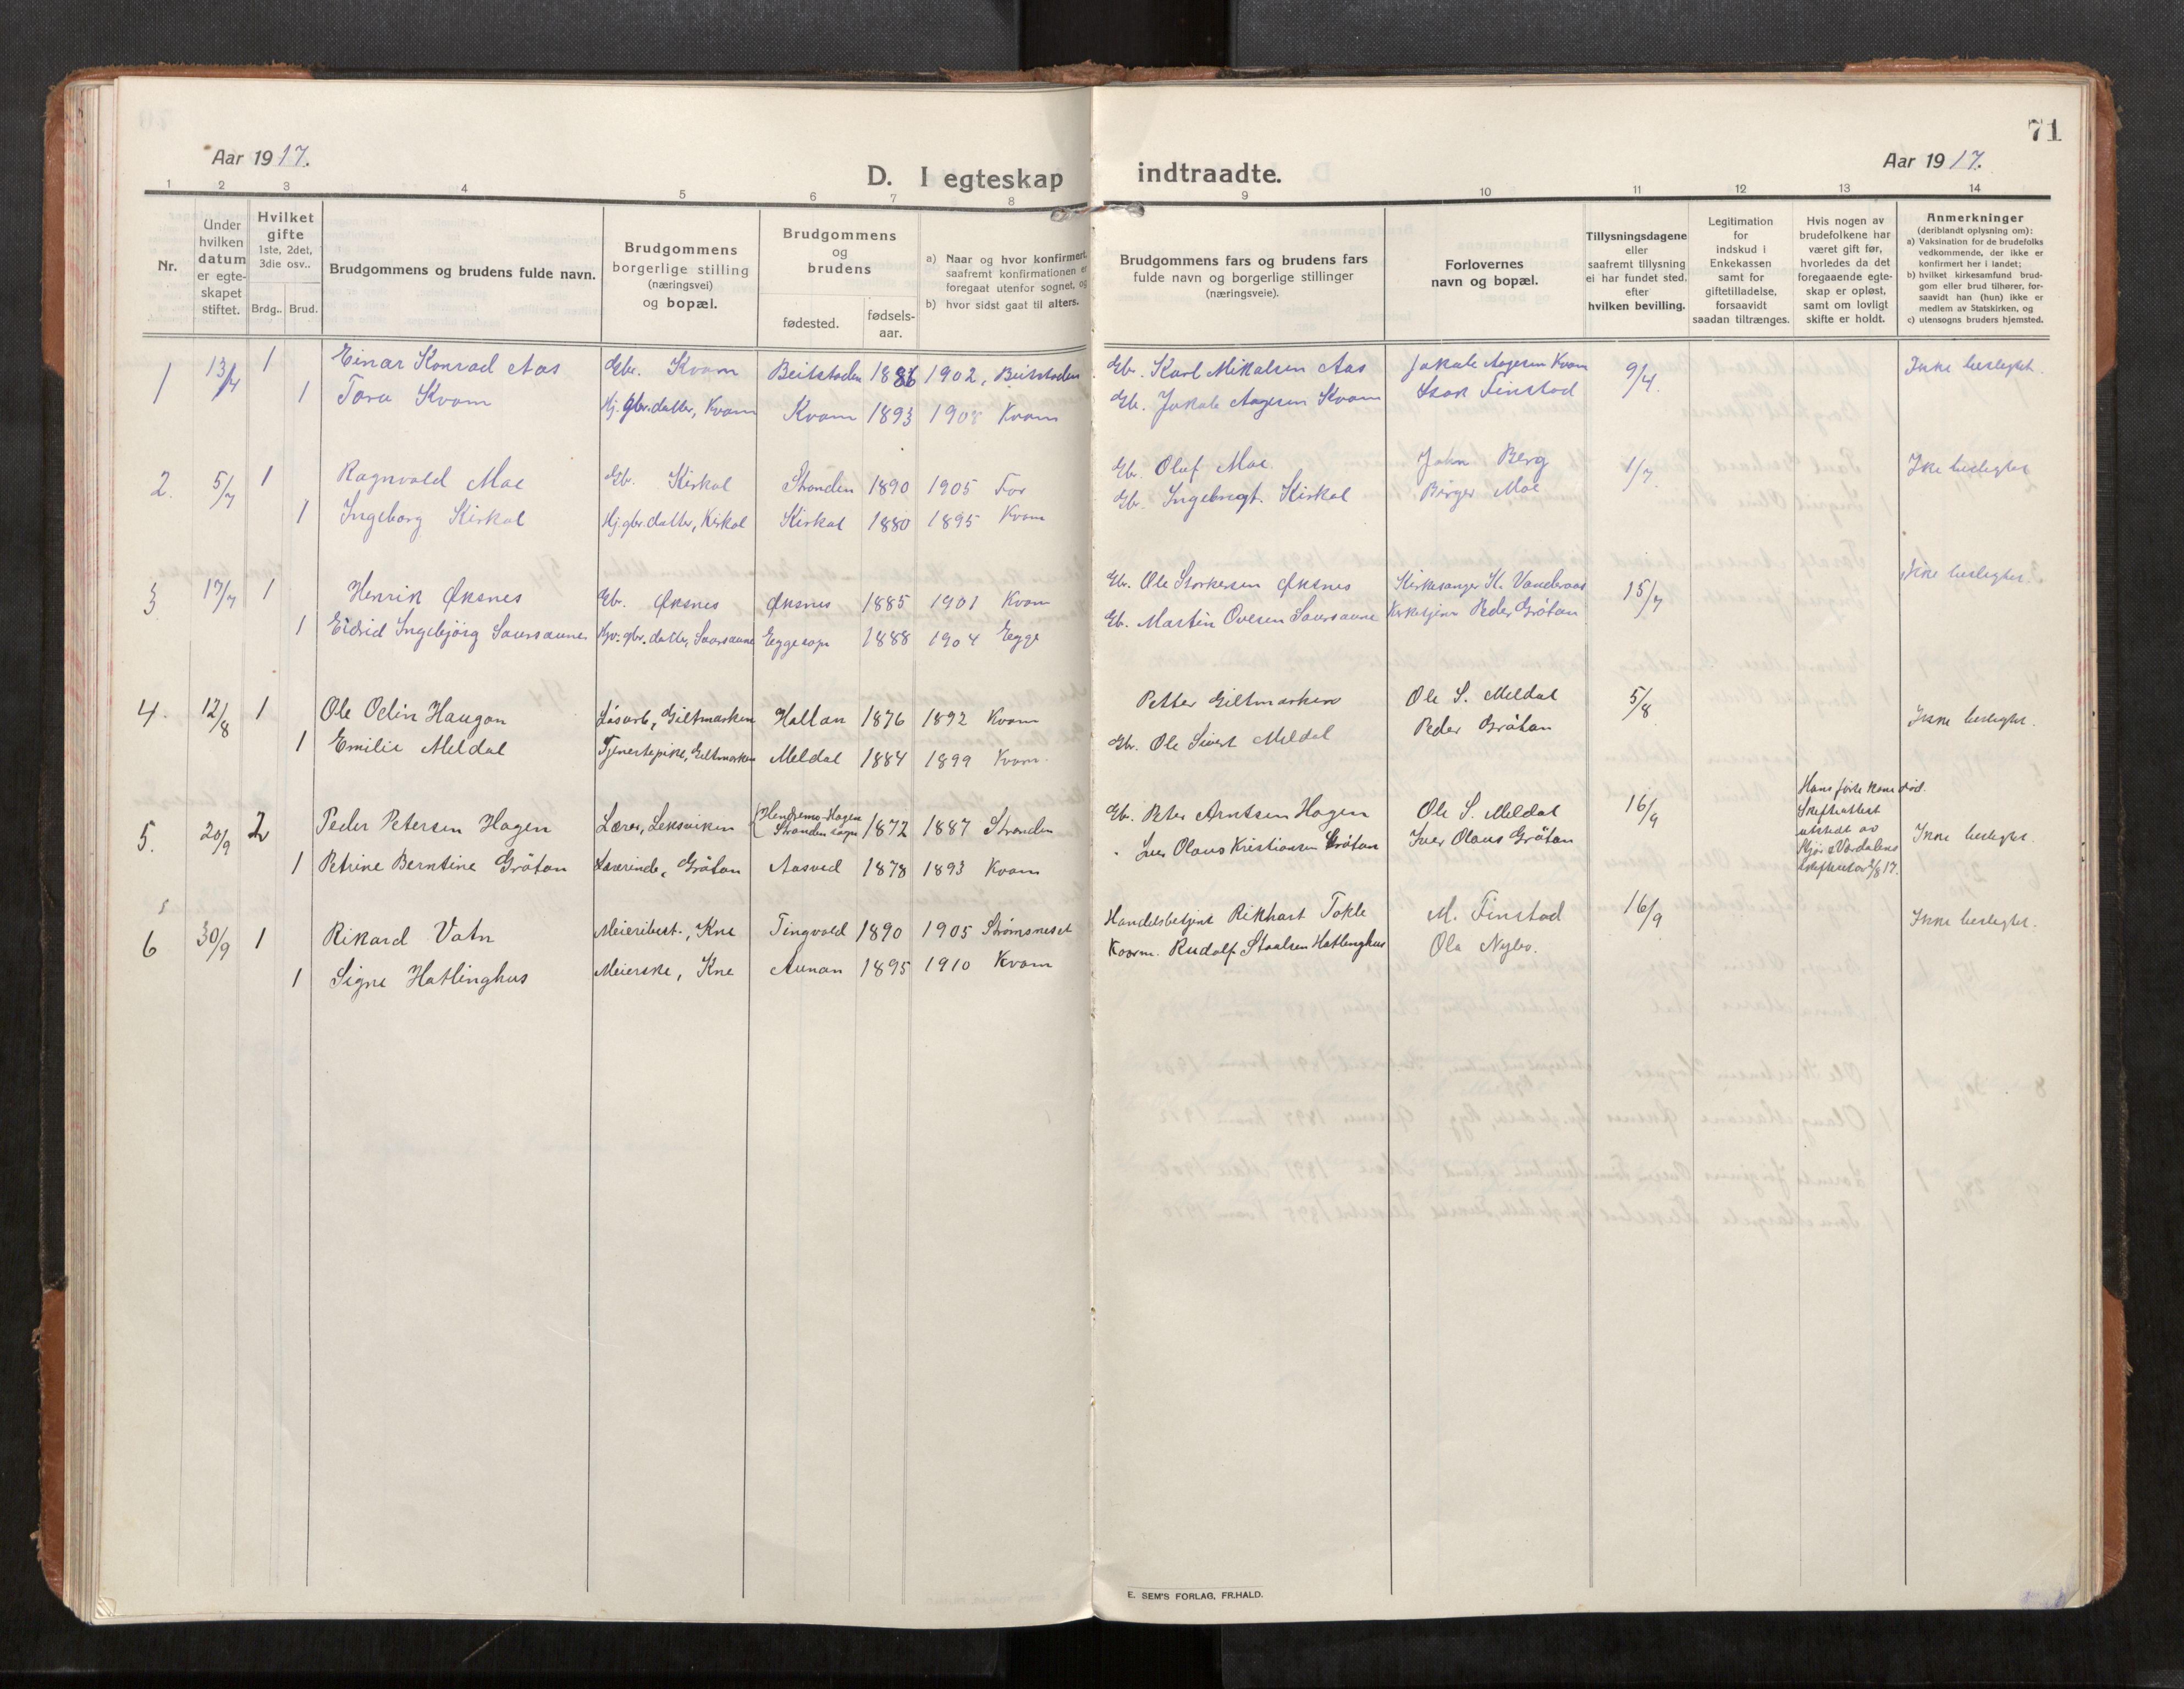 71
Aar 1917.
D. I egteskap indtraadte.
Aar 1917.
1 2 3 4 5 6 7 8 9 10 11 12 13 14
Nr.
Under hvilken datum er egte- skapet stiftet.
Hvilket gifte 1ste, 2det, 3die osv..
Brdg.. Brud.
Brudgommens og brudens fulde navn.
Brudgommens borgerlige stilling (næringsvei) og bopæl.
Brudgommens og brudens
fødested.
fødsels- aar.
a) Naar og hvor konfirmert, saafremt konfirmationen er foregaat utenfor sognet, og
b) hvor sidst gaat til alters.
Brudgommens fars og brudens fars fulde navn og borgerlige stillinger (næringsveie).
Forlovernes navn og bopæl.
Tillysningsdagene eller saafremt tillysning ei har fundet sted. efter hvilken bevilling.
Legitimation for indskud i Enkekassen samt for giftetilladelse, forsaavidt saadan tiltrænges.
Hvis nogen av brudefolkene har været gift før, hvorledes da det foregaaende egte- skap er opløst, samt om lovligt skifte er holdt.
Anmerkninger (deriblandt oplysning om):
a) Vaksination for de brudefolks vedkommende, der ikke er konfirmert her i landet;
b) hvilket kirkesamfund brud- gom eller brud tilhører, for- saavidt han (hun) ikke er medlem av Statskirken, og
c) utensogns bruders hjemsted.
1 13/4 1 Einar Konrad Aas Gbr. Kvam Beitstaden 1886 1902, Beitstaden Gb. Karl Mikalsen Aas Jakob Aagesen Kvam 9/4. Ikke beslegtet.
1 Tora Kvam Hj. gbr.datter, Kvam Kvam 1893 1908 Kvam Gb. Jakob Aagesen Kvam Isak Finstad
2. 5/7 1 Ragnvald Moe Gb. Kirkol Stranden 1890 1905 For Gb. Oluf Moe. John Berg 1/7. Ikke beslegtet
1 Ingeborg Kirkol Hj.gbr.datter, Kirkol Kirkol 1880 1895 Kvam Gb. Ingebrigt. Kirkol Birger Moe
3 17/7 1 Henrik Øksnes Gb. Øksnes Øksnes 1885 1901 Kvam Gb. Ole Storkersen Øksnes Kirkesanger K. Vanderaas 15/7 Ikke beslegtet.
1 Eidrid Ingebjörg Saursaunet Hjv. gbr. datter, Saursaune Egge sogn 1888 1904 Egge Gb. Martin Ovesen Saursaune Kirketjener Peder Gråtan
4. 12/8 1 Ole Odin Haugan Løsarb., Giltmarken Hallan 1876 1892 Kvam Petter Giltmarken Ole S. Meldal 5/8 Ikke beslegtet.
1 Emilie Meldal Tjenestepike, Giltmarken Meldal 1884 1899 Kvam. Gbr. Ole Sivert Meldal Peder Gråtan
5. 20/9 2 Peder Petersen Hagen Lærer, Leksviken Hendremo-Hagen Stranden sogn 1872 1887 Stranden Gb. Peter Arntsen Hagen Ole S. Meldal 16/9 Hans første kone død. Skifteattest utstedt av Stjør & Værdalens Ikke beslegtet.
1 Petrine Berntine Gråtan Lærerinde, Gråtan Aasved 1878 1893 Kvam " Iver Olaus Kristiansen Gråtan Iver Olaus Gråtan
6 30/9 1 Rikard Vatn Meieribest., Kne Tingvold 1890 1905 Strømsneset Handelsbetjent Rikhart Tokle M. Finstad 16/9 Ikke beslegtet.
1 Signe Hatlinghus Meierske, Kne Aunan 1895 1910 Kvam Kaarm. Rudolf Staalsen Hatlinghus Ola Nybo.
E. SEM'S FORLAG, FR.HALD.